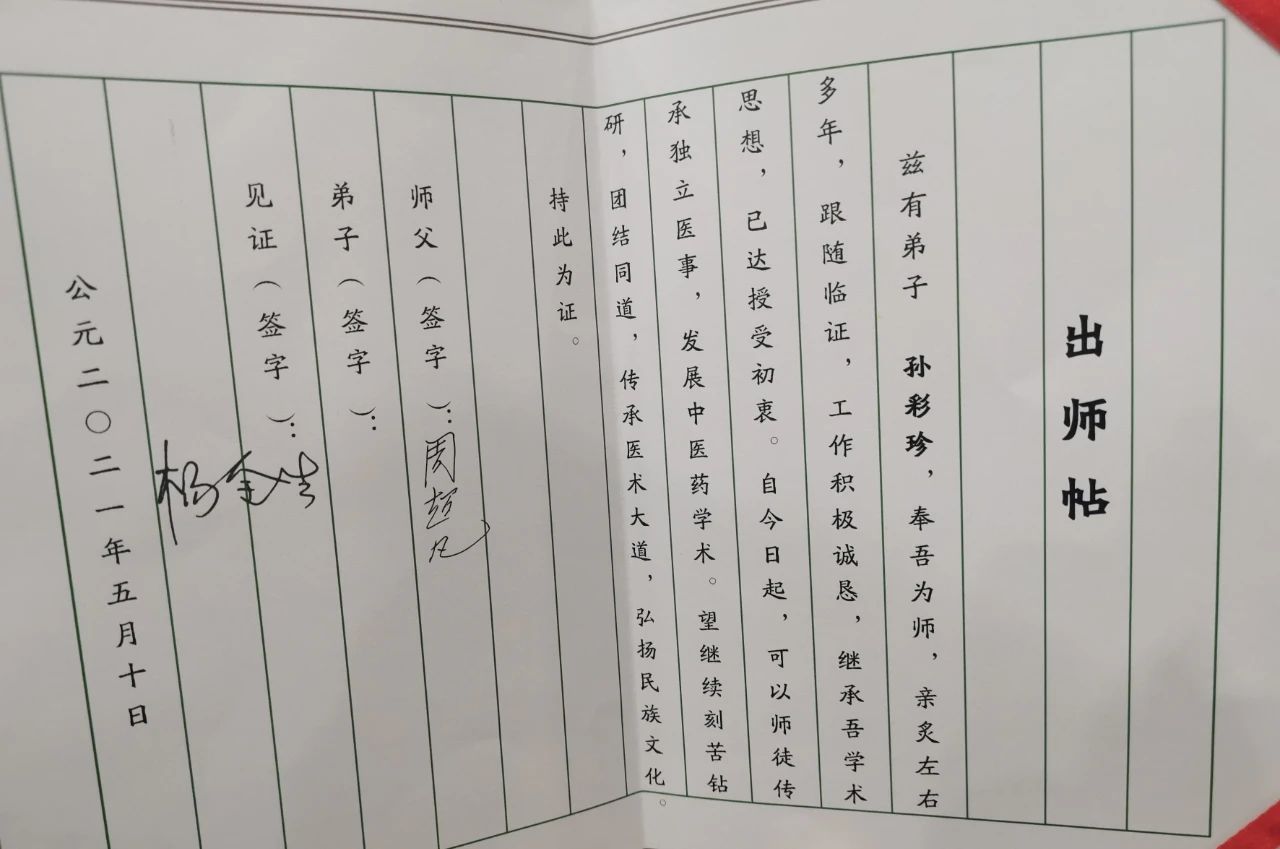 出师帖
兹有弟子 孙彩珍，奉吾为师，亲炙左右
多年，跟随临证，工作积极诚恳，继承吾学术
思想，已达授受初衷。自今日起，可以师徒传
承独立医事，发展中医药学术。望继续刻苦钻
研，团结同道，传承医术大道，弘扬民族文化。
持此为证。
师父（签字）：周超凡
弟子（签字）：
见证（签字）：杨金生
公元二〇二一年五月十日